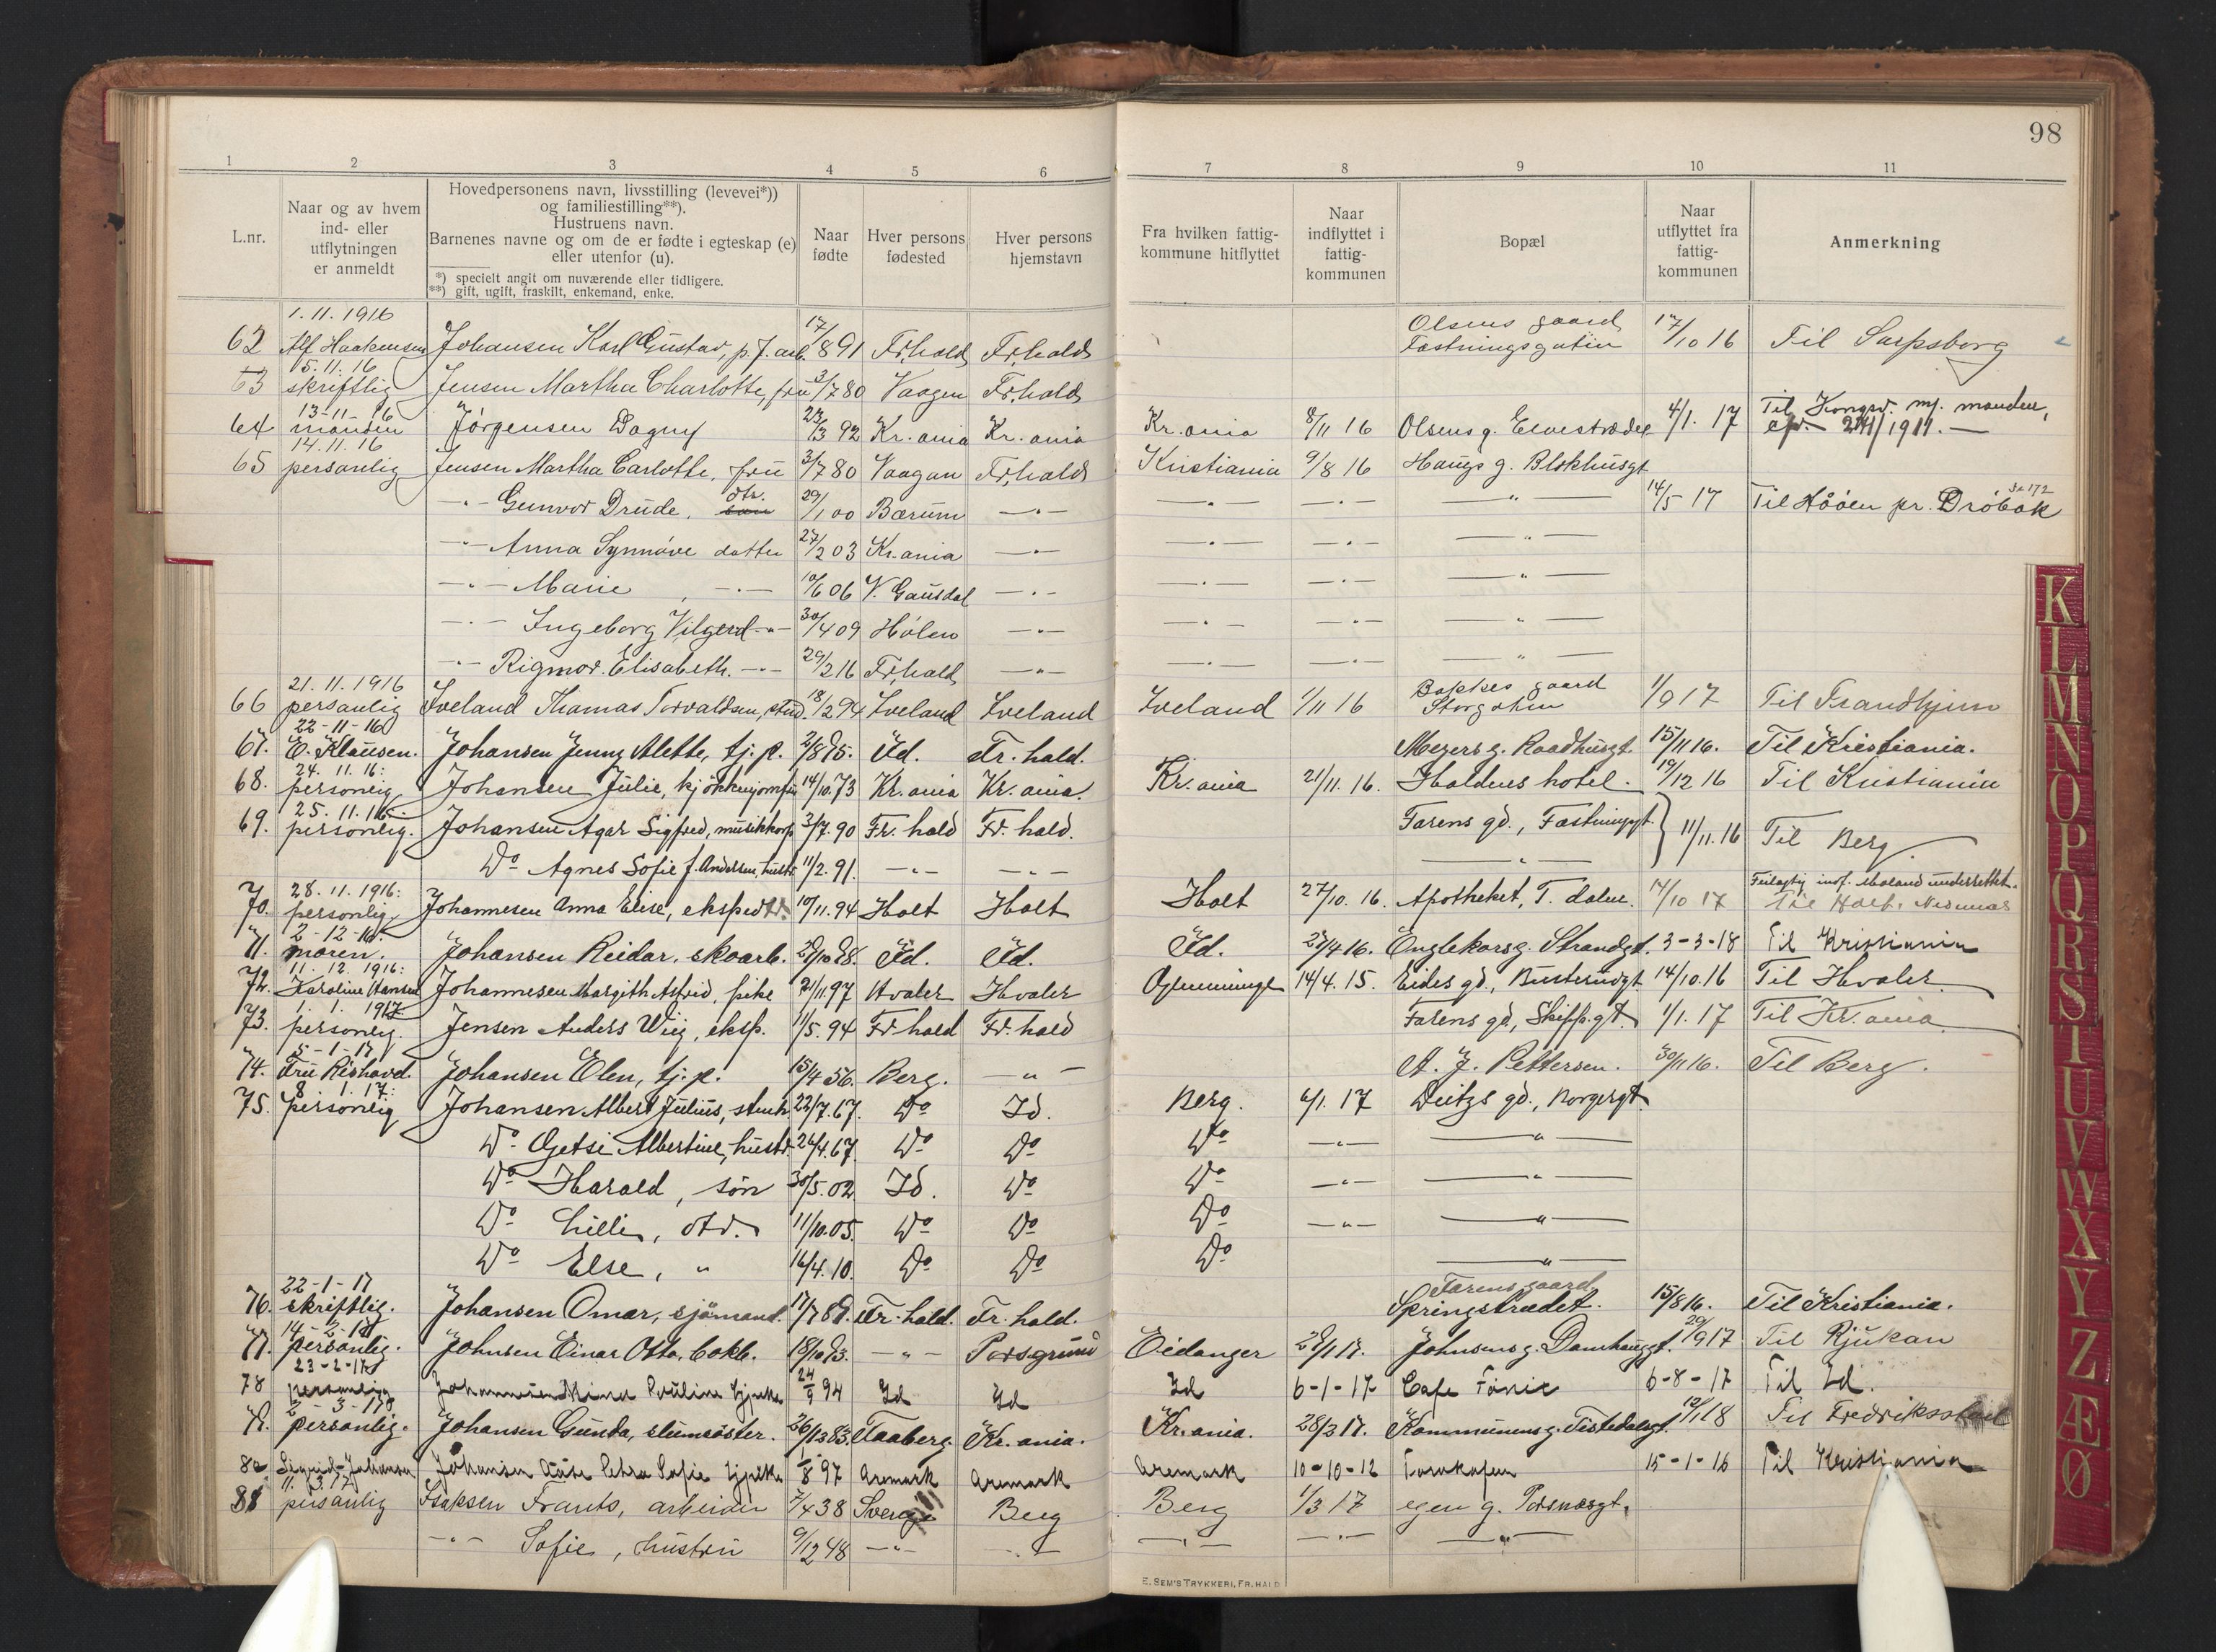 98
1 2 3 4 5 6 7 8 9 10 11
L.nr.
Naar og av hvem
ind- eller
utflytningen
er anmeldt
Hovedpersonens navn, livsstilling (levevei*))
og familiestilling**).
Hustruens navn.
Barnenes navne og om de er fødte i egteskap (e)
eller utenfor (u).
*) specielt angit om nuværende eller tidligere.
**) gift, ugift, fraskilt, enkemand, enke.
Naar
fødte
Hver persons
fødested
Hver persons
hjemstavn
Fra hvilken fattig-
kommune hitflyttet
Naar
indflyttet i
fattig-
kommunen
Bopæl
Naar
utflyttet fra
fattig-
kommunen
Anmerkning
1.11.1916 Olsens gaard
62 Alf Haakensen Johansen Karl Gustav, p.f. arb. 17/8 91 Fr.hald Fr.hald Fæstningsgaten 17/10 16 Til Sarpsborg
15.11.16
63 skriftlig Jensen Martha Charlotte, fru 3/7 80 Vaagen Fr.hald
13-11-16 Til Kongsv. mj. manden,
64 manden Jørgensen Dagny 23/3 92 Kr.ania Kr.ania Kr.ania 8/11 16 Olsens g. Elvestrædet 4/1. 17
14.11.16
65 personlig Jensen Martha Carlotte, frü 3/7 80 Vaagan Fr.hald Kristiania 9/8 16 Haugs g. Blokhusgt
-"- Gunvor Drude. dtr. 29/1 00 Bærum -"- -"- -"- -"- 14/5 17 Til Hååen pr. Drøbak
-"- Anna Synnøve datter 27/2 03 Kr.ania -"- -"- -"- -"-
-"- Marie, -"- 10/6 06 V. Gausdal -"- -"- -"- -"-
-"- Ingeborg Vilgerd -"- 30/4 09 Hølen -"- -"- -"- -"-
-"- Rigmor Elisabeth. -"- 29/2 16 Fr.hald -"- -"- -"- -"-
21.11.1916 Bakkes gaard
66 personlig Iveland Thomas Torvaldsen, stud. 18/2 94 Iveland Iveland Iveland 1/11 16 Storgaten 1/9 17 Til Trondhjem
22-11-16
67. E. Klausen. Johansen Jenny Alette, tj.p. 2/8 95. Id. Fr. hald. Meyers g. Raadhusgt. 15/11 16. Til Kristiania.
24. 11. 16:
68. personlig Johansen Julie, kjøkkenjomfru 14/10.73 Kr.ania Kr.ania. Kr.ania 21/11.16. Haldens hotel. 19/12 16 Til Kristiania
25. 11. 16.
69. personlig. Johansen Agar Sigfred, musikkorp 3/7. 90 Fr. hald Fr. hald. Farens gd., Fæstningsgt. 11/11.16 Til Berg
Do Agnes Sofie f. Andersen, hustr. 11/2. 91. -"- -"- -"-
28. 11. 1916: Feilagtig inf. underrettet.
70. personlig Johannesen Anna Elise, ekspedtr. 10/11.94 Holt Holt Holt 27/10. 16. Apotheket, T. dalen. 14/10 17 Til Holt, Nedenæs
2-12-16.
71. moren. Johansen Reidar. skoarb. 29/10 98. Id. Id. Id. 27/4 16. Englekorsg. Strandgt. 3-3-18 Til Kristiania
11. 12. 1916:
72. Karoline Hansen Johannesen Margith Astrid, pike 21/11.97 Hvaler Hvaler Glemminge 14/4. 15. Eides gd., Busterudgt 14/10.16 Til Hvaler
1. 1. 1917
73. personlig. Jensen Anders Wiig, eksp. 11/5. 94 Fr hald Fr. hald Farens gd, Skipp.gt. 1/1. 17 Til Kr.ania
5-1-17
74. Frü Rishavd. Johansen Elen, tj.p. 15/4 56. Berg. -"- A. J. Pettersen. 30/11 16. Til Berg.
8. 1. 17:
75. personlig Johansen Albert Julius, stenh 22/7.67. Do Id. Berg. 6/1. 17 Deitzs gd., Borgergt.
Do Getsi Albertine, hustr. 26/4.67. Do Do Do -"- -"-
Do Harald, søn 30/5.02 Id. Do Do -"- -"-
Do Lilli, dtr. 11/10.05 Do Do Do -"- -"-
Do Else, " 16/4.10. Do Do Do -"-
22-1-17 Farens gaard
76. skriftlig. Johansen Omar, sjømand. 17/7 89. Fr. hald. Fr. hald. Springstrædet. 15/8 16. Til Kristiania.
14-2-17
77. personlig. Johnsen Einar Otto, bokb. 18/10 93. -"- Porsgrund Eidanger 29/1 17. Johnsens g. Damhaugt. 29/9 17 Til Rjukan
23-2-17
78 personlig Johannesen Mina Pauline tjpike 24/9 94 Id Id Id 6-1-17 Cafe Fønix 6-8-17 Til Id.
2-3-17
79. personlig. Johansen Gunda, slumsøster. 26/12 83. Faaberg. Kr.ania. Kr.ania. 28/2 17. Kommunens g. Tistedalsgt. Til Fredriksstad
80 Sigrid Johansen Johansen Aase Petra Sofie tjpike 8 97 Aremark Aremark Aremark 10-10-12 Torvkafeen 15-1-16 Til Kristiania
11.3.17
81 personlig Isaksen Frants, arbeider 7/4 38 Sverige Berg Berg 1/3 17 egen g. Porsnæsgt.
-"- Sofie, hustru 9/12 48 -"- -"- -"- -"- -"-
E. SEM'S TRYKKERI, FR.HALD
K
L
M
N
O
P
Q
R
S
T
U
V
W
X
Y
Z
Æ
Ø